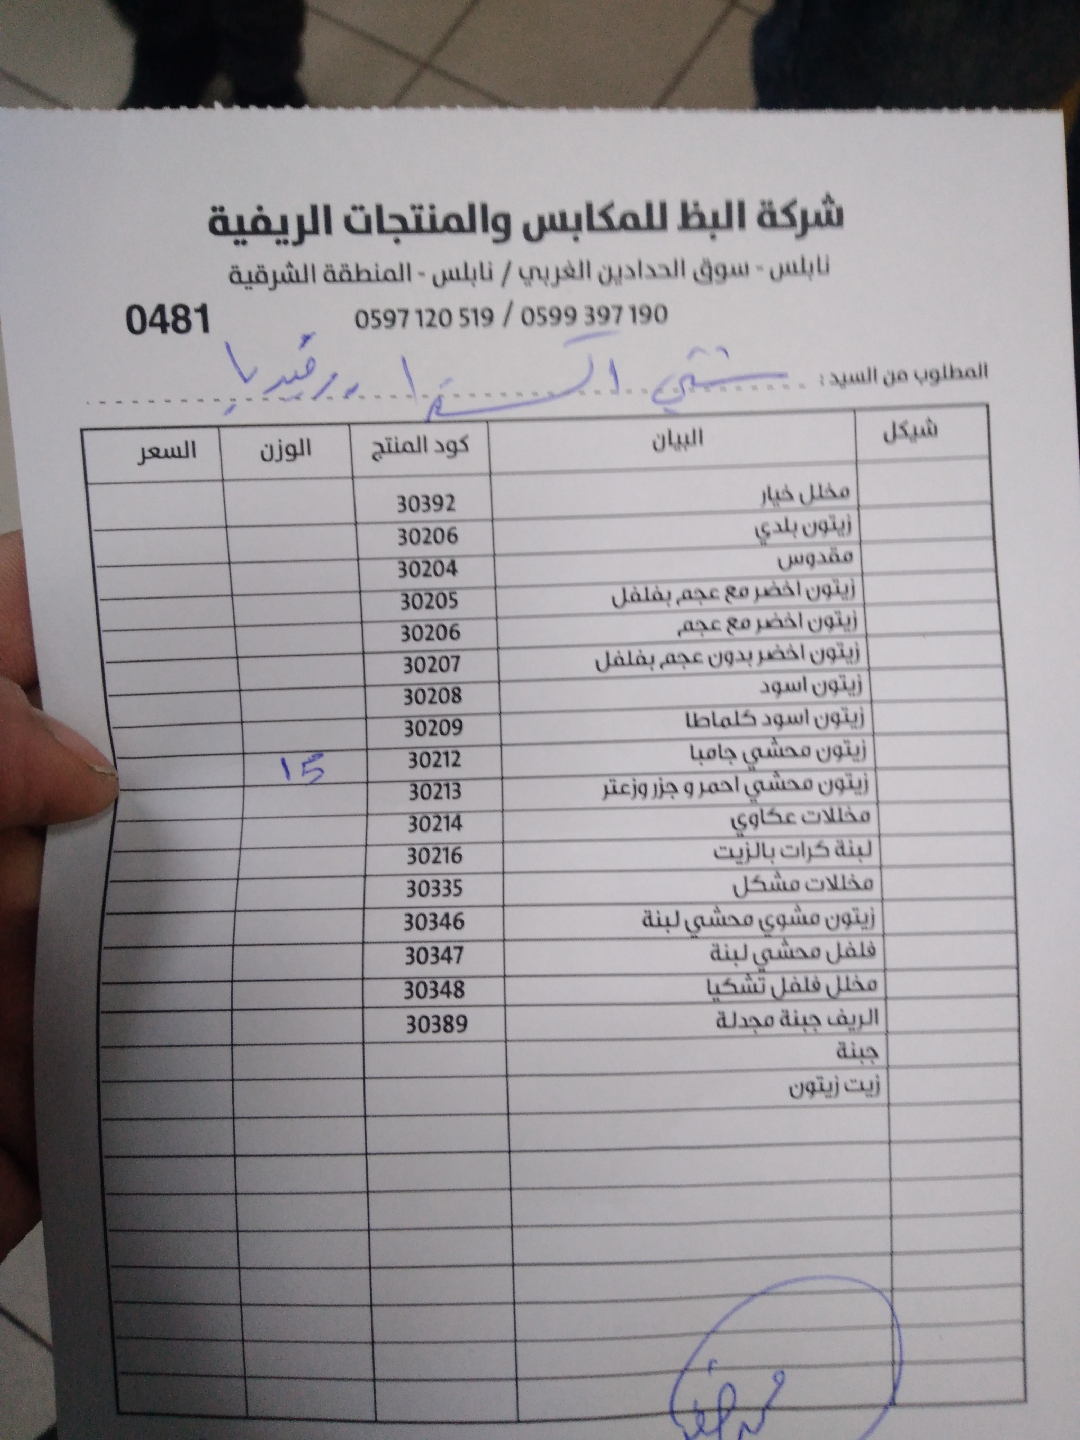 شركة البظ للمكابس والمنتجات الريفية
نابلس - سوق الحدادين الغربي / نابلس - المنطقة الشرقية
0481 0597 120 519 / 0599 397 190
المطلوب من السيد: اكسترا رفيديا
شيكل البيان كود المنتج الوزن السعر
مخلل خيار 30392
زيتون بلدي 30206
مقدوس 30204
زيتون اخضر مع عجم بفلفل 30205
زيتون اخضر مع عجم 30206
زيتون اخضر بدون عجم بفلفل 30207
زيتون اسود 30208
زيتون اسود كلماطا 30209
زيتون محشي جامبا 30212 15
زيتون محشي احمر و جزر وزعتر 30213
مخللات عكاوي 30214
لبنة كرات بالزيت 30216
مخللات مشكل 30335
زيتون مشوي محشي لبنة 30346
فلفل محشي لبنة 30347
مخلل فلفل تشكيا 30348
الريف جبنة مجدلة 30389
جبنة
زيت زيتون